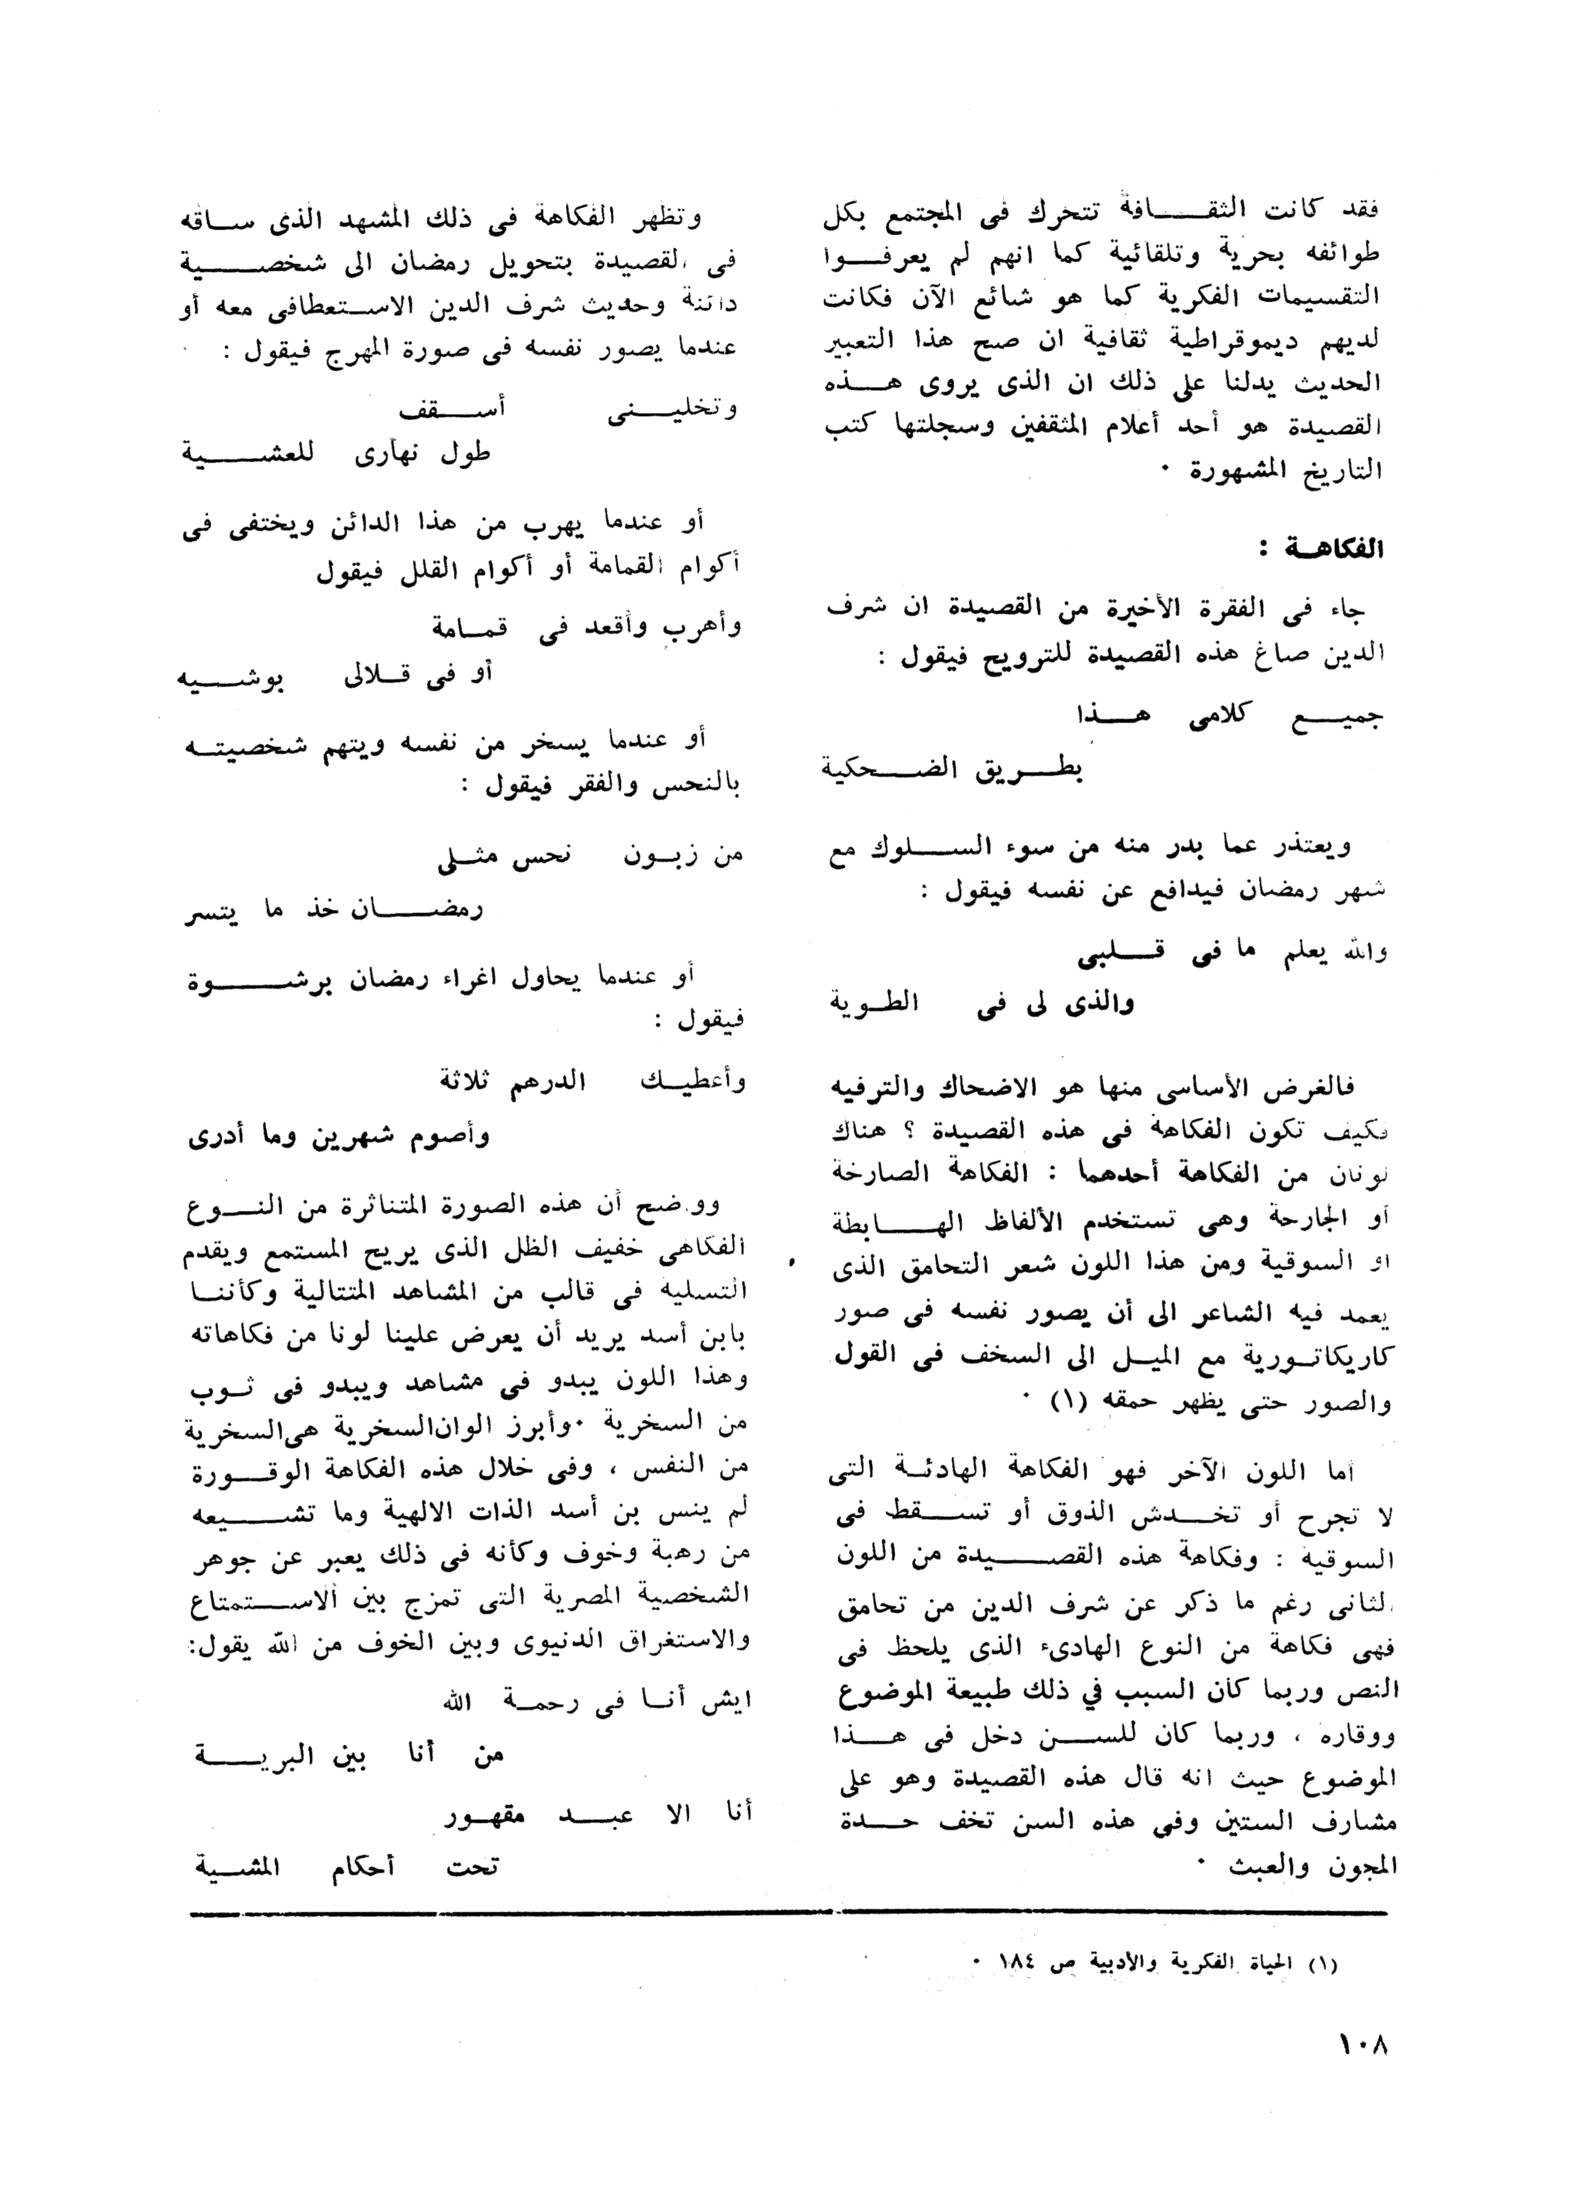 فقد كانت الثقافة تتحرك فى المجتمع بكل
طوائفه بحرية وتلقائية كما انهم لم يعرفوا
التقسيمات الفكرية كما هو شائع الآن فكانت
لديهم ديموقراطية ثقافية ان صح هذا التعبير
الحديث يدلنا على ذلك ان الذى يروى هذه
القصيدة هو أحد أعلام المثقفين وسجلتها كتب
التاريخ المشهورة ٠
الفكاهة :
جاء فى الفقرة الأخيرة من القصيدة ان شرف
الدين صاغ هذه القصيدة للترويح فيقول :
جميع كلامى هذا
بطريق الضحكية
ويعتذر عما بدر منه من سوء السلوك مع
شهر رمضان فيدافع عن نفسه فيقول :
والله يعلم ما فى قلبى
والذى لى فى الطوية
فالغرض الأساسى منها هو الاضحاك والترفيه
فكيف تكون الفكاهة فى هذه القصيدة ؟ هناك
لونان من الفكاهة أحدهما : الفكاهة الصارخة
أو الجارحة وهى تستخدم الألفاظ الهابطة
او السوقية ومن هذا اللون شعر التحامق الذى
يعمد فيه الشاعر الى أن يصور نفسه فى صور
كاريكاتورية مع الميل الى السخف فى القول
والصور حتى يظهر حمقه (١) ٠
أما اللون الآخر فهو الفكاهة الهادئة التى
لا تجرح أو تخدش الذوق أو تسقط فى
السوقية : وفكاهة هذه القصيدة من اللون
الثانى رغم ما ذكر عن شرف الدين من تحامق
فهى فكاهة من النوع الهادىء الذى يلحظ فى
النص وربما كان السبب في ذلك طبيعة الموضوع
ووقاره ، وربما كان للسن دخل فى هذا
الموضوع حيث انه قال هذه القصيدة وهو على
مشارف الستين وفى هذه السن تخف حدة
المجون والعبث ٠
وتظهر الفكاهة فى ذلك المشهد الذى ساقه
فى القصيدة بتحويل رمضان الى شخصية
دائنة وحديث شرف الدين الاستعطافى معه أو
عندما يصور نفسه فى صورة المهرج فيقول :
وتخلينى أسقف
طول نهارى للعشية
أو عندما يهرب من هذا الدائن ويختفى فى
أكوام القمامة أو أكوام القلل فيقول
وأهرب وأقعد فى قمامة
أو فى قلالى بوشيه
أو عندما يسخر من نفسه ويتهم شخصيته
بالنحس والفقر فيقول :
من زبون نحس مثلى
رمضان خذ ما يتسر
أو عندما يحاول اغراء رمضان برشوة
فيقول :
وأعطيك الدرهم ثلاثة
وأصوم شهرين وما أدرى
وواضح أن هذه الصورة المتناثرة من النوع
الفكاهى خفيف الظل الذى يريح المستمع ويقدم
التسلية فى قالب من المشاهد المتتالية وكأننا
بابن أسد يريد أن يعرض علينا لونا من فكاهاته
وهذا اللون يبدو فى مشاهد ويبدو فى ثوب
من السخرية ٠وأبرز الوان السخرية هى السخرية
من النفس ، وفى خلال هذه الفكاهة الوقورة
لم ينس بن أسد الذات الالهية وما تشيعه
من رهبة وخوف وكأنه فى ذلك يعبر عن جوهر
الشخصية المصرية التى تمزج بين الاستمتاع
والاستغراق الدنيوى وبين الخوف من الله يقول:
ايش أنا فى رحمة الله
من أنا بين البرية
أنا الا عبد مقهور
تحت أحكام المشية
(١) الحياة الفكرية والأدبية ص ١٨٤ ٠
١٠٨